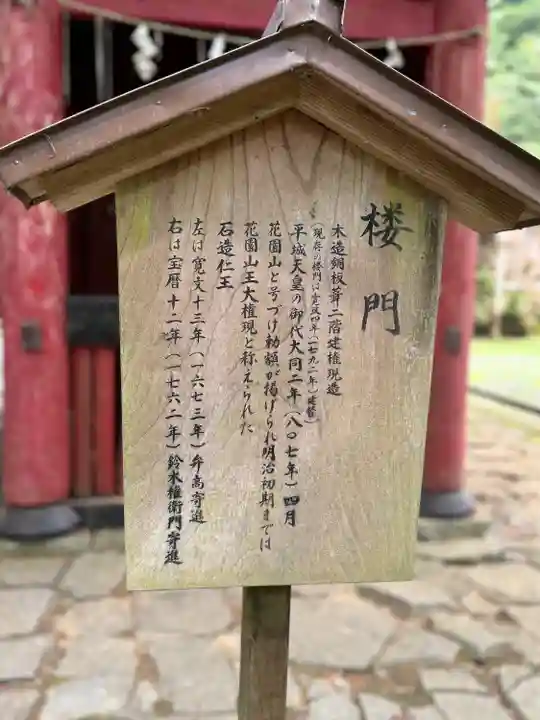 楼門
木造銅板葺二階建権現造
(現存の楼門は寛政四年(一七九二年)建替)
平城天皇の御代大同二年(八〇七年)四月
花園山と号づけ勅額が掲げられ明治初期までは
花園山王大権現と称えられた
石造仁王
左は寛文十三年(一六七三年)弁高寄進
右は宝暦十二年(一七六二年)鈴木権衛門寄進